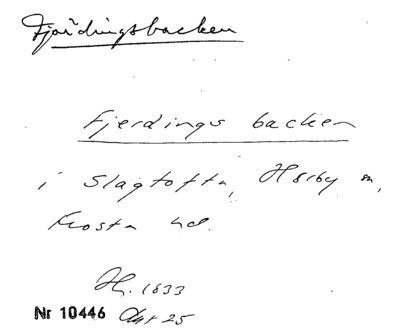 Fjärdingsbacken
Fjerdings backen
i Slagtofta, Hörby sn,
Frosta hd.
H. 1633
Nr 10446 Akt 25